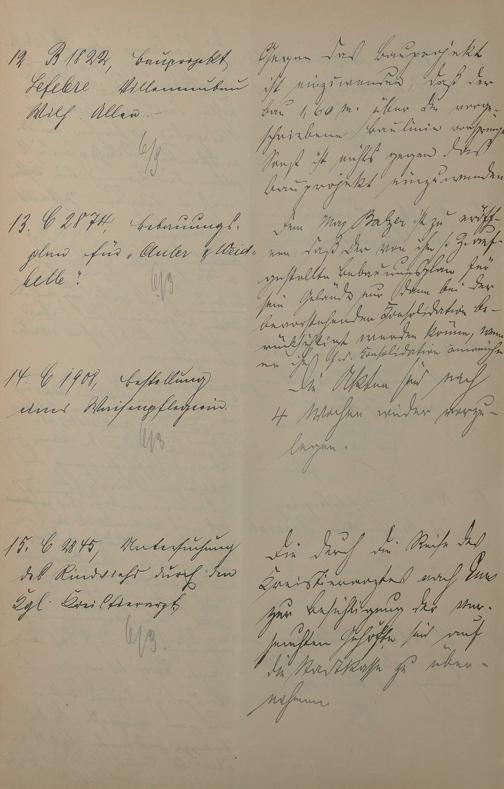 12. B 1822, Bauprojekt
Lefebre Villenneubau
Wilh. Allee.
6/3
Gegen das Bauprojekt
ist einzuwenden, daß der
Bau 1,60 m. über die vorge-
schriebene Baulinie vorspringt
Sonst ist nichts gegen das
Bauprojekt einzuwenden
13. C 2874, Bebauungs-
plan für „Auler & Weid-
helle".
6/3.
Dem Max Balzer ist zu eröff-
nen, daß der von ihm s. Z. auf-
gestellte Bebauungsplan für
sein Gelände nur dann bei der
bevorstehenden Consolidation be-
rücksichtigt werden könne, wenn
er der Consolidation
14. C 1908, Bestellung
einer Waisenpflegerin.
6/3
Die Akten sind nach
4 Wochen wieder vorzu-
legen.
15. C 2845, Untersuchung
des Rindviehs durch den
Kgl. Kreistierarzt
6/3.
Die durch die Reise des
Kreistierarztes nach
zur Besichtigung der ver-
seuchten Gehöfte sind auf
die Stadtkasse zu über-
nehmen